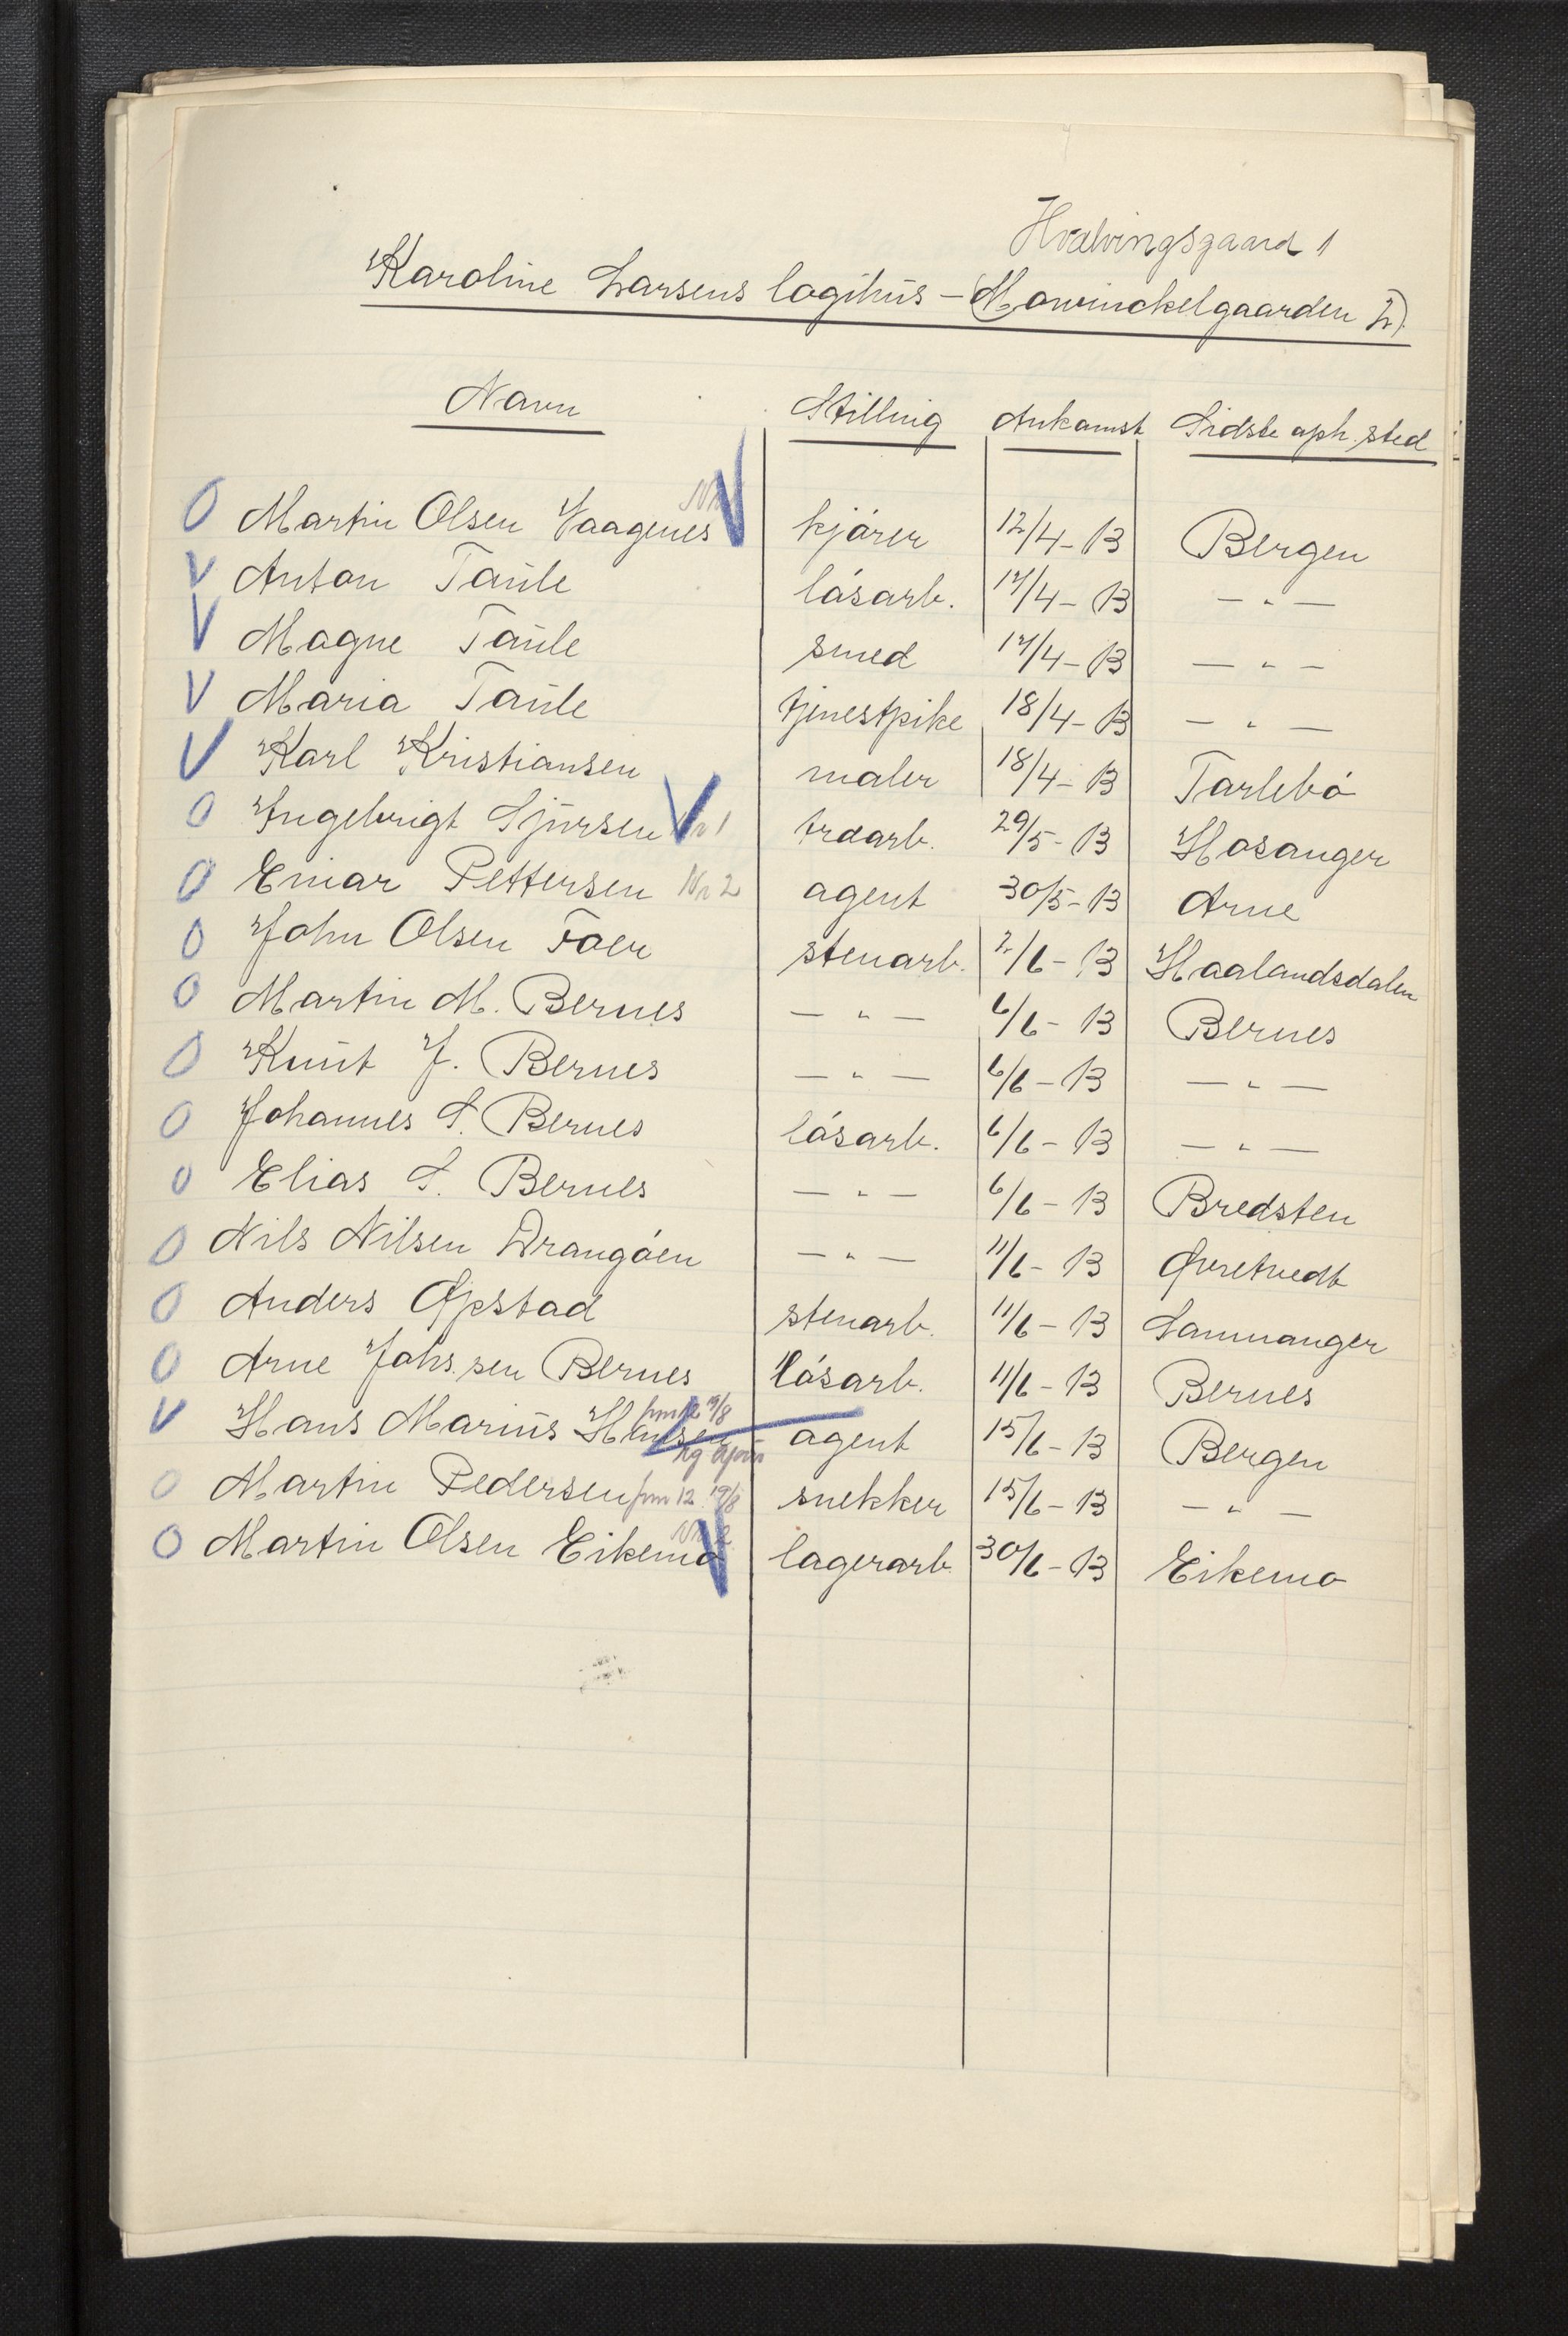 Hvalvingsgaard 1
Karoline Larsens logihus – (Mowinckelgaarden 2)
Navn Stilling Ankomst Sidste oph. sted
O Martin Olsen Vaagenes V kjører 12/4-13 Bergen
V Anton Taule løsarb. 17/4-13 — " —
V Magne Taule smed 17/4-13 — " —
V Maria Taule tjenestpike 18/4-13 — " —
V Karl Kristiansen maler 18/4-13 Tarlebø
O Ingebrigt Sjursen V Nr 1 trdarb. 29/5-13 Hosanger
O Einar Pettersen Nr 2 agent 30/5-13 Arne
O John Olsen Foer stenarb. 2/6-13 Haalandsdalen
O Martin M. Bernes — " — 6/6-13 Bernes
O Knut J. Bernes — " — 6/6-13 — " —
O Johannes S. Bernes løsarb. 6/6-13 — " —
O Elias S. Bernes — " — 6/6-13 Bredsten
O Nils Nilsen Drangøen — " — 11/6-13 Øvretvedt
O Anders Opstad stenarb. 11/6-13 Sammanger
O Arne Johs.sen Bernes løsarb. 11/6-13 Bernes
V Hans Marius Hansen agent 15/6-13 Bergen
O Martin Pedersen 12 19/8 snekker 15/6-13 — " —
O Martin Olsen Eikemo V lagerarb. 30/6-13 Eikemo